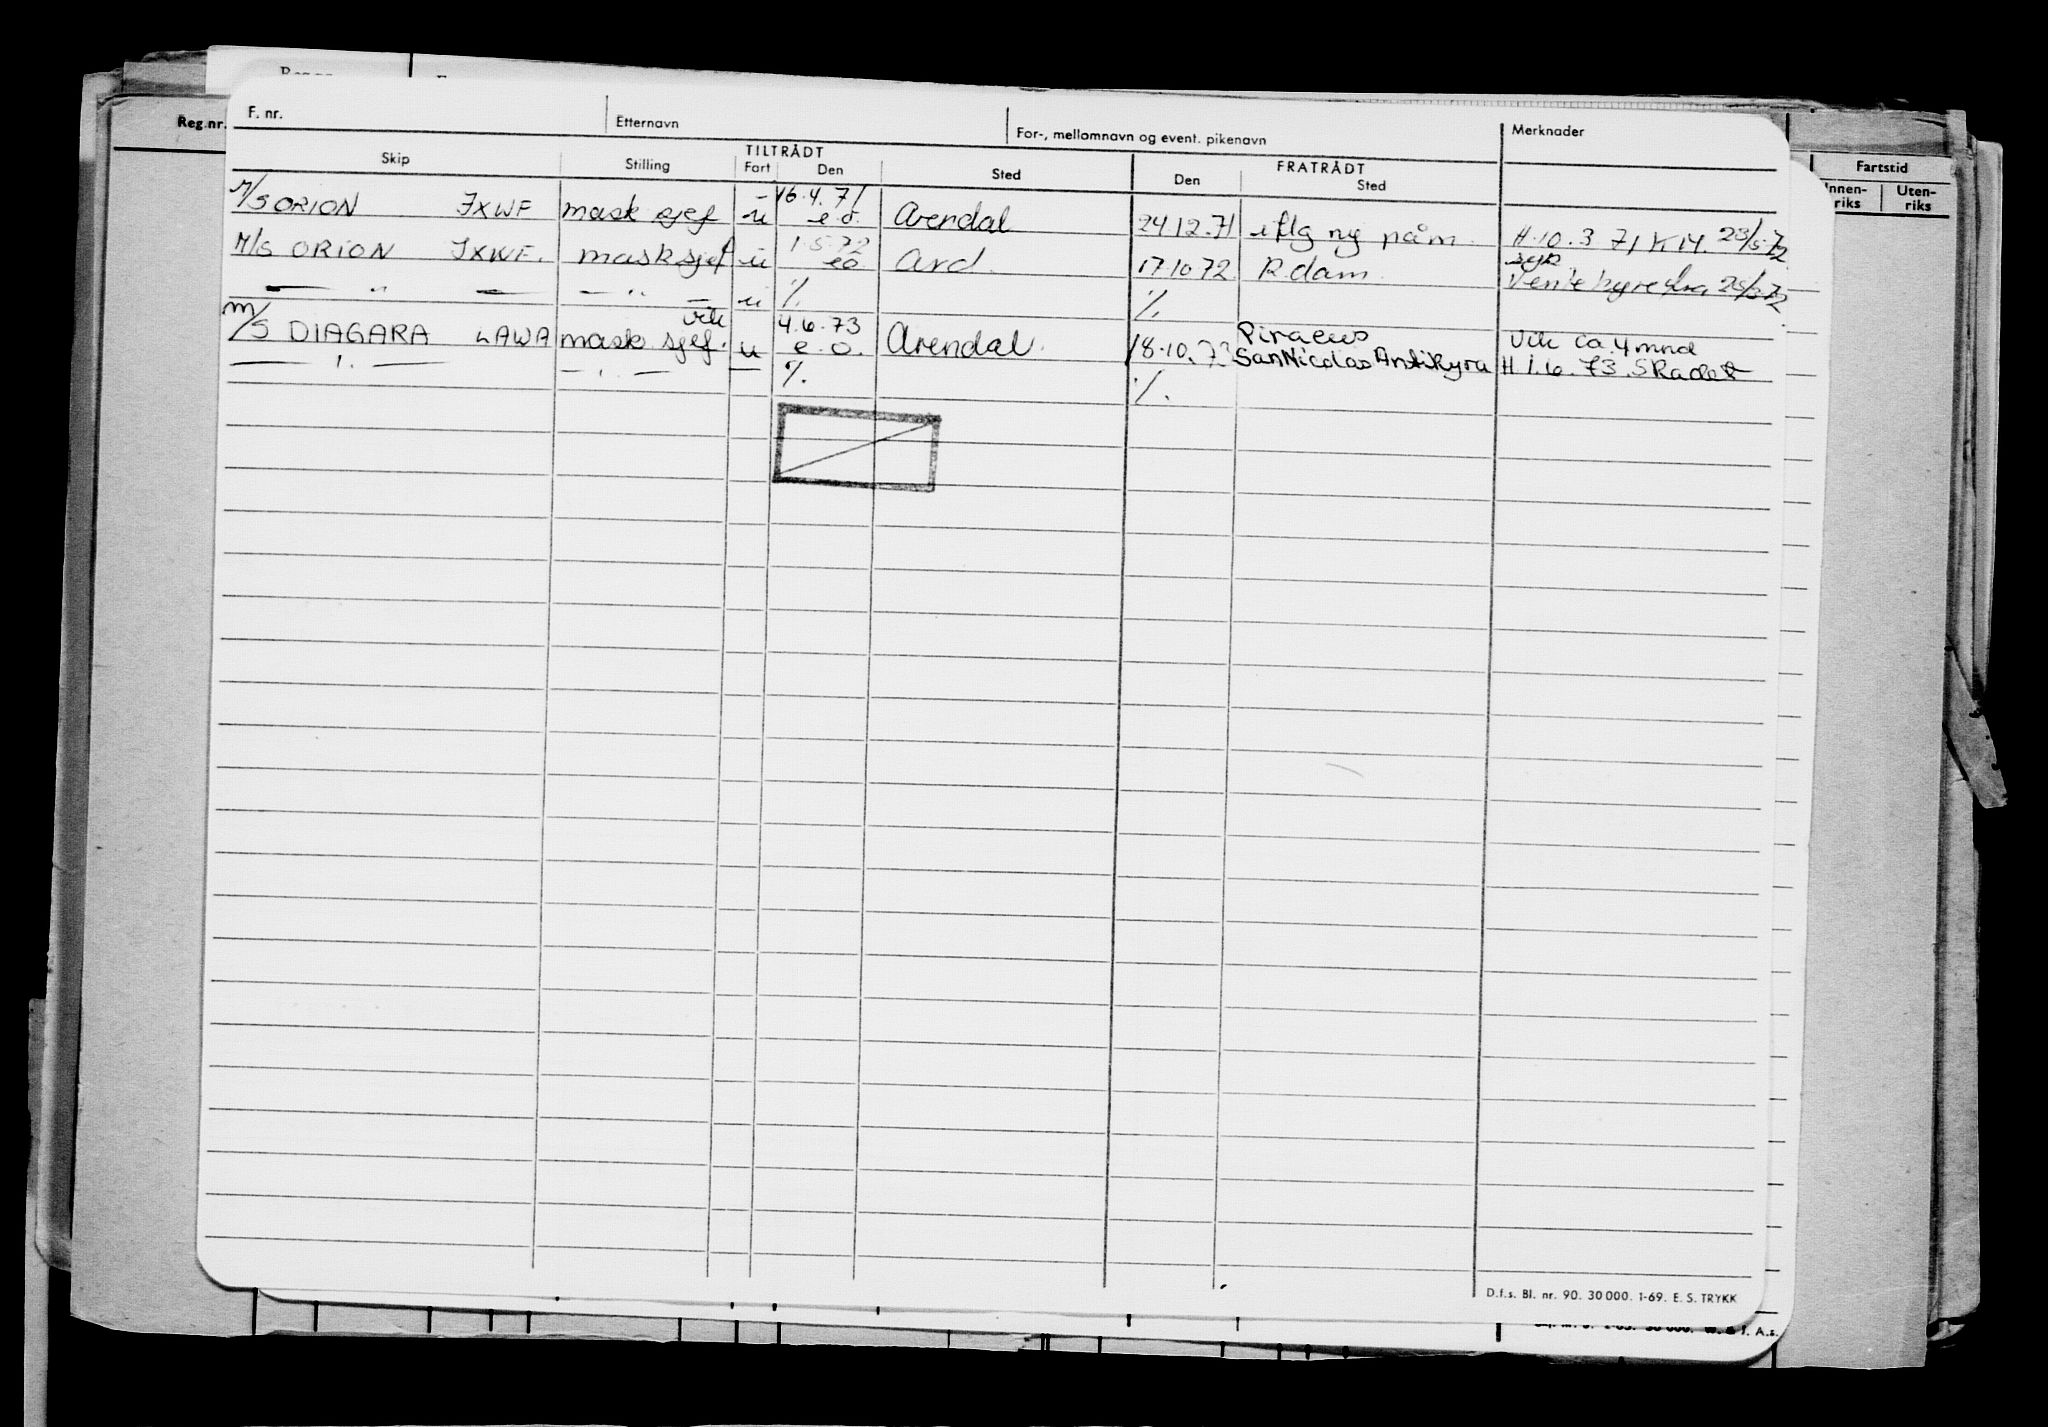 Reg.nr.
F. nr. Etternavn For-, mellomnavn og event. pikenavn Merknader
TILTRÅDT FRATRÅDT
Skip Stilling Fart Den Sted Den Sted
Fartstid
Innen-riks Uten-riks
M/S ORION JXWF mask sjef u 16.4.71 e.o. Arendal 24.12.71 iflg ny påm. H.10.3 71 K14. 23/5-72
M/S ORION JXWF. mask sjef u 1.5.72 eo Ard. 17.10.72 R.dam. syk Ventehyre fra 25/5-72
— " — — " — u %. %.
M/S DIAGARA LAWA mask. sjef. vik u 4.6.73 e.o. Arendal. 18.10.73 Piraeus San Nicolas Antikyra Vik ca. 4 mnd H 1.6.73. Skadet
— " — — " — — %. %.
D.f.s. Bl. nr. 90. 30 000. 1-69. E. S. TRYKK